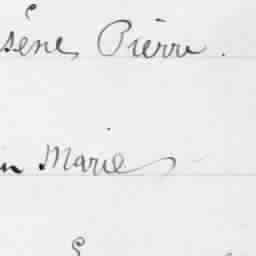 sène, Pierre.
in Marie